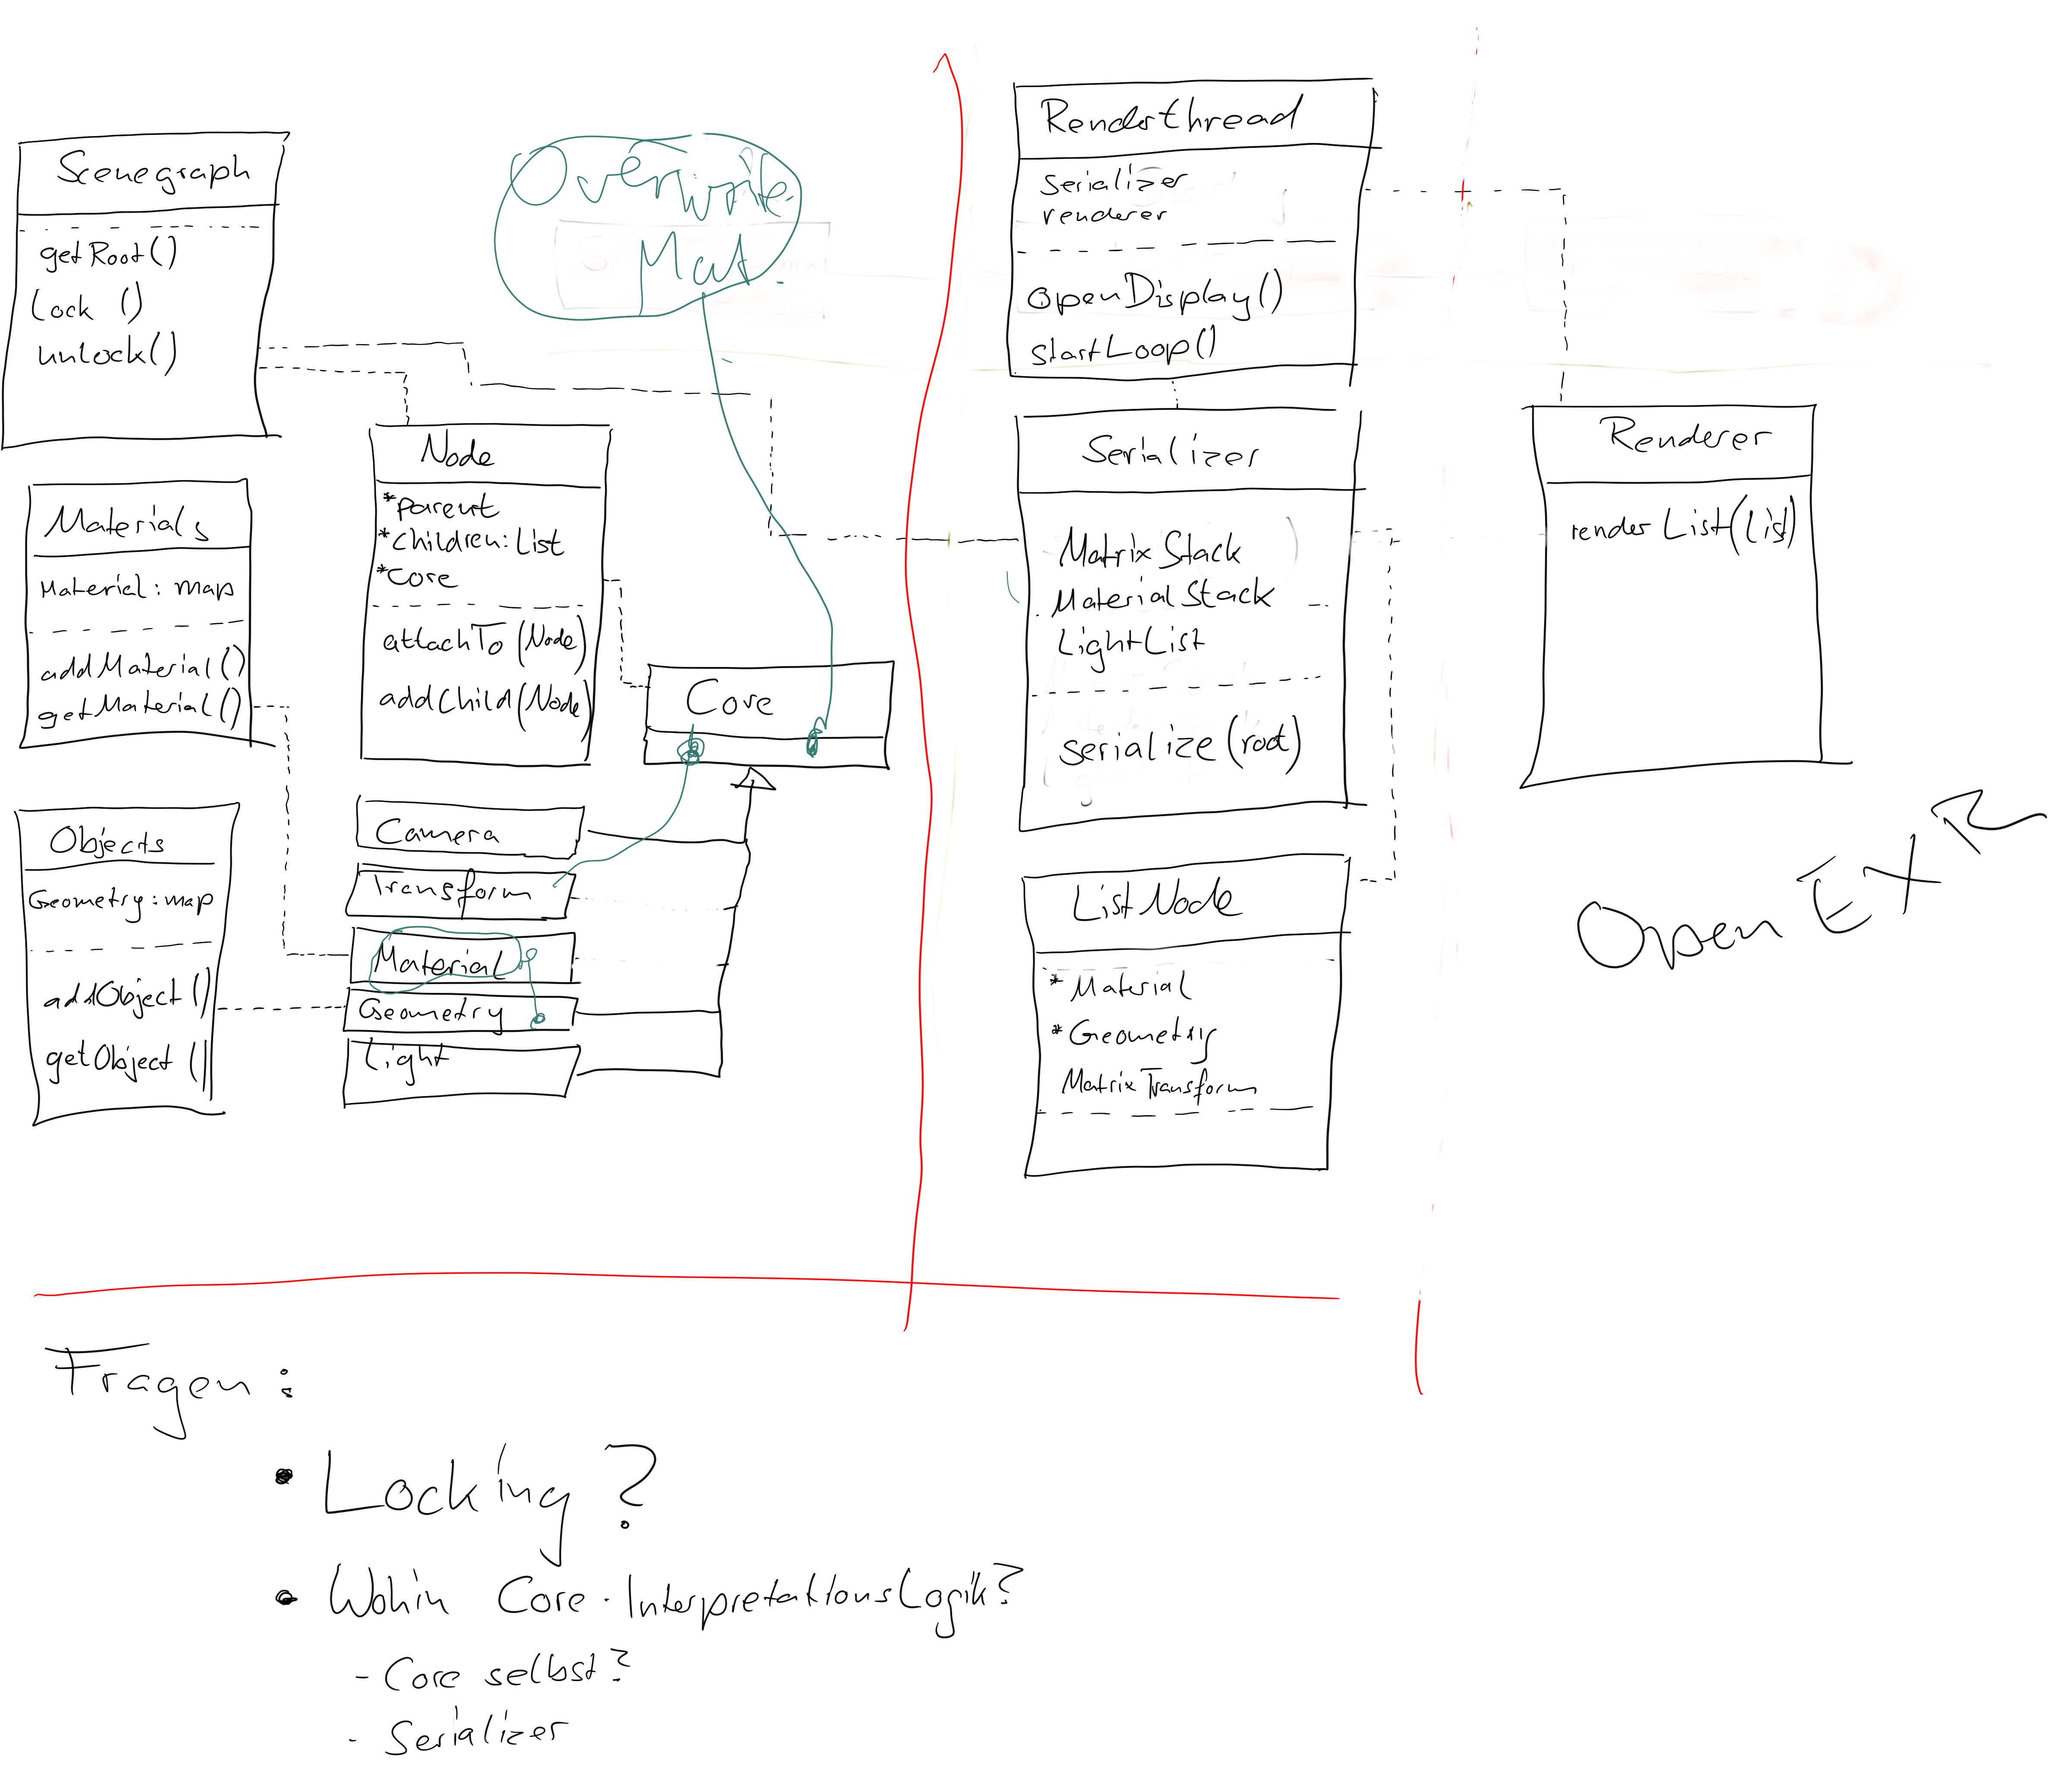 Scenegraph
getRoot()
lock ()
unlock()
Materials
Material: map
addMaterial()
getMaterial()
Objects
Geometry: map
addObject()
getObject()
Overwrite
Mat.
Node
*parent
*children: List
*core
attachTo (Node)
addChild(Node)
Core
Camera
Transform
Material
Geometry
Light
Renderthread
Serializer
renderer
openDisplay()
startLoop()
Serializer
Matrix Stack
Material Stack
LightList
serialize (root)
ListNode
* Material
* Geometry
Matrix Transform
Renderer
render List(List)
Open EXR
Fragen:
• Locking?
• Wohin Core-InterpretationsLogik?
- Core selbst?
- Serializer